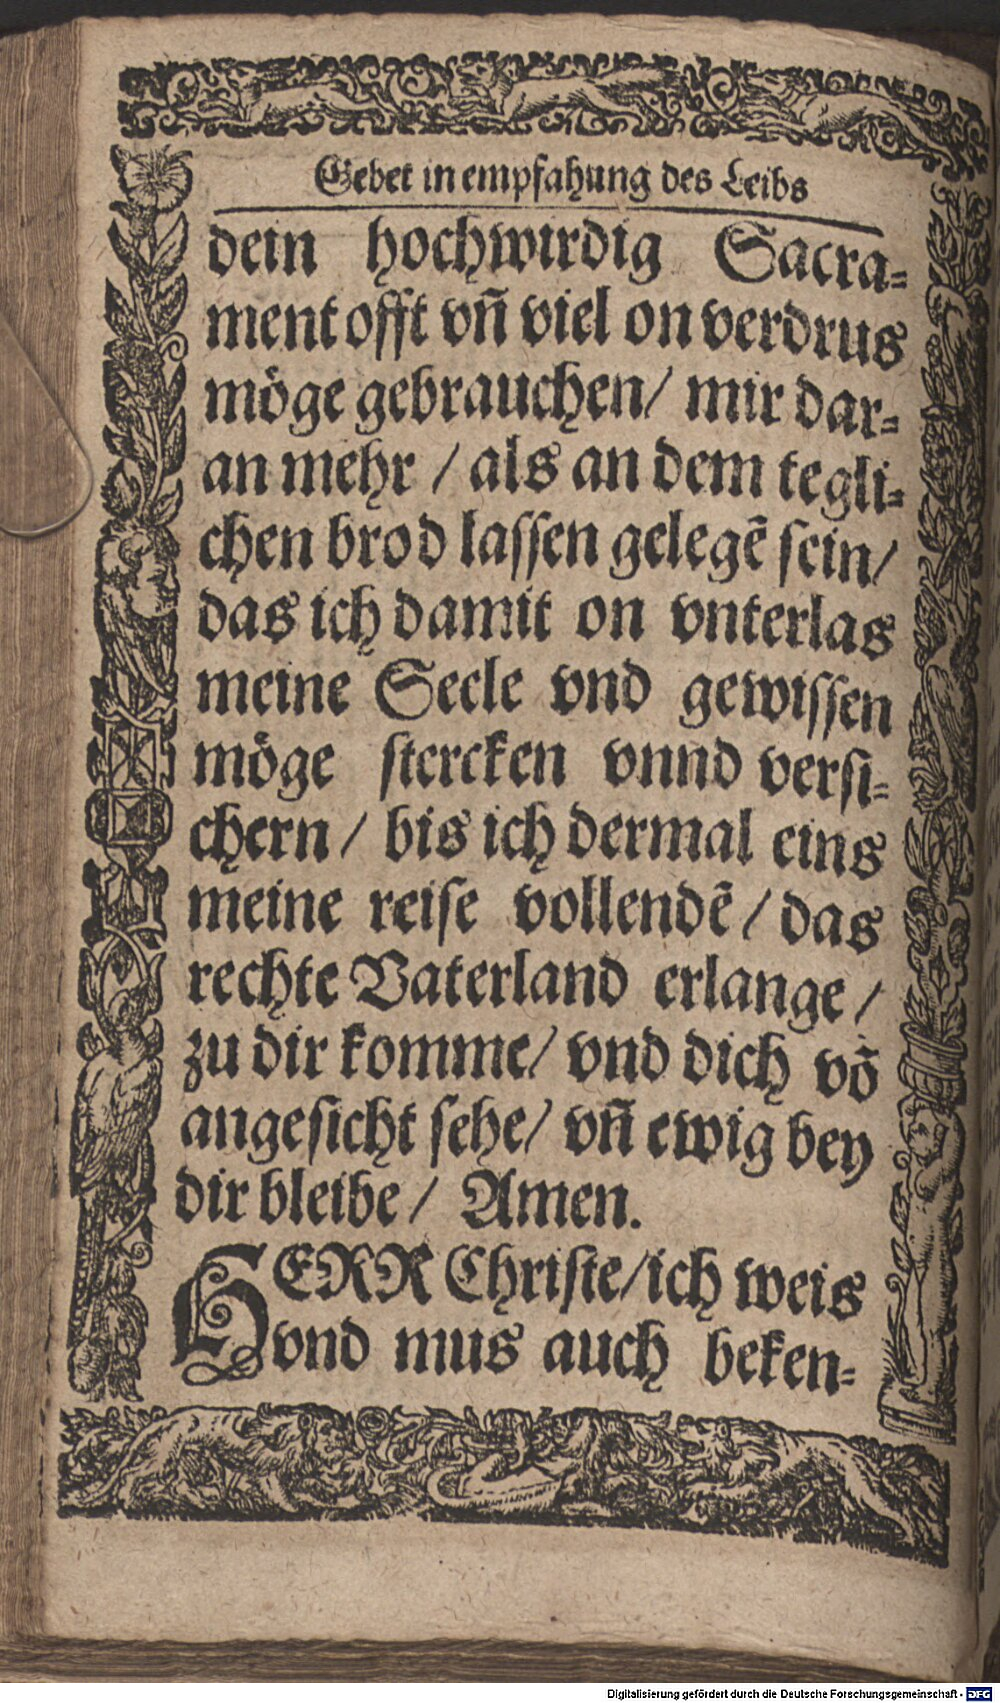 Gebet in empfahung des Leibs
dein hochwirdig Sacra=
ment offt vñ viel on verdrus
möge gebrauchen/ mir dar=
an mehr / als an dem tegli=
chen brod lassen gelegē sein/
das ich damit on vnterlas
meine Seele vnd gewissen
möge stercken vnnd versi=
chern / bis ich dermal eins
meine reise vollendē / das
rechte Vaterland erlange /
zu dir komme/ vnd dich vō
angesicht sehe/ vñ ewig bey
dir bleibe / Amen.
HERR Christe/ich weis
vnd mus auch beken=
Digitalisierung gefördert durch die Deutsche Forschungsgemeinschaft - DFG